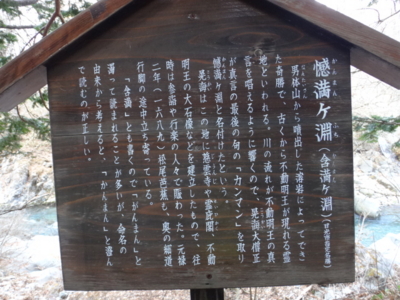 憾満ヶ淵（含満ヶ淵）
かんまんがふち
男体山から噴出した溶岩によってでき
た奇勝で、古くから不動明王が現れる霊
地といわれる。川の流れが不動明王の真
言を唱えるように響くので、晃海大僧正
が真言の最後の句の「カンマン」を取り
憾満ヶ淵と名付けたという。
晃海はこの地に慈雲寺や霊庇閣、不動
明王の大石像などを建立したもので、往
時は参詣や行楽の人々で賑わった。元禄
二年（一六八九）松尾芭蕉も、奥の細道
行脚の途中立ち寄っている。
「含満」とも書くので「がんまん」と
濁って読まれることが多いが、命名の
由来から考えると、「かんまん」と澄ん
で読むのが正しい。